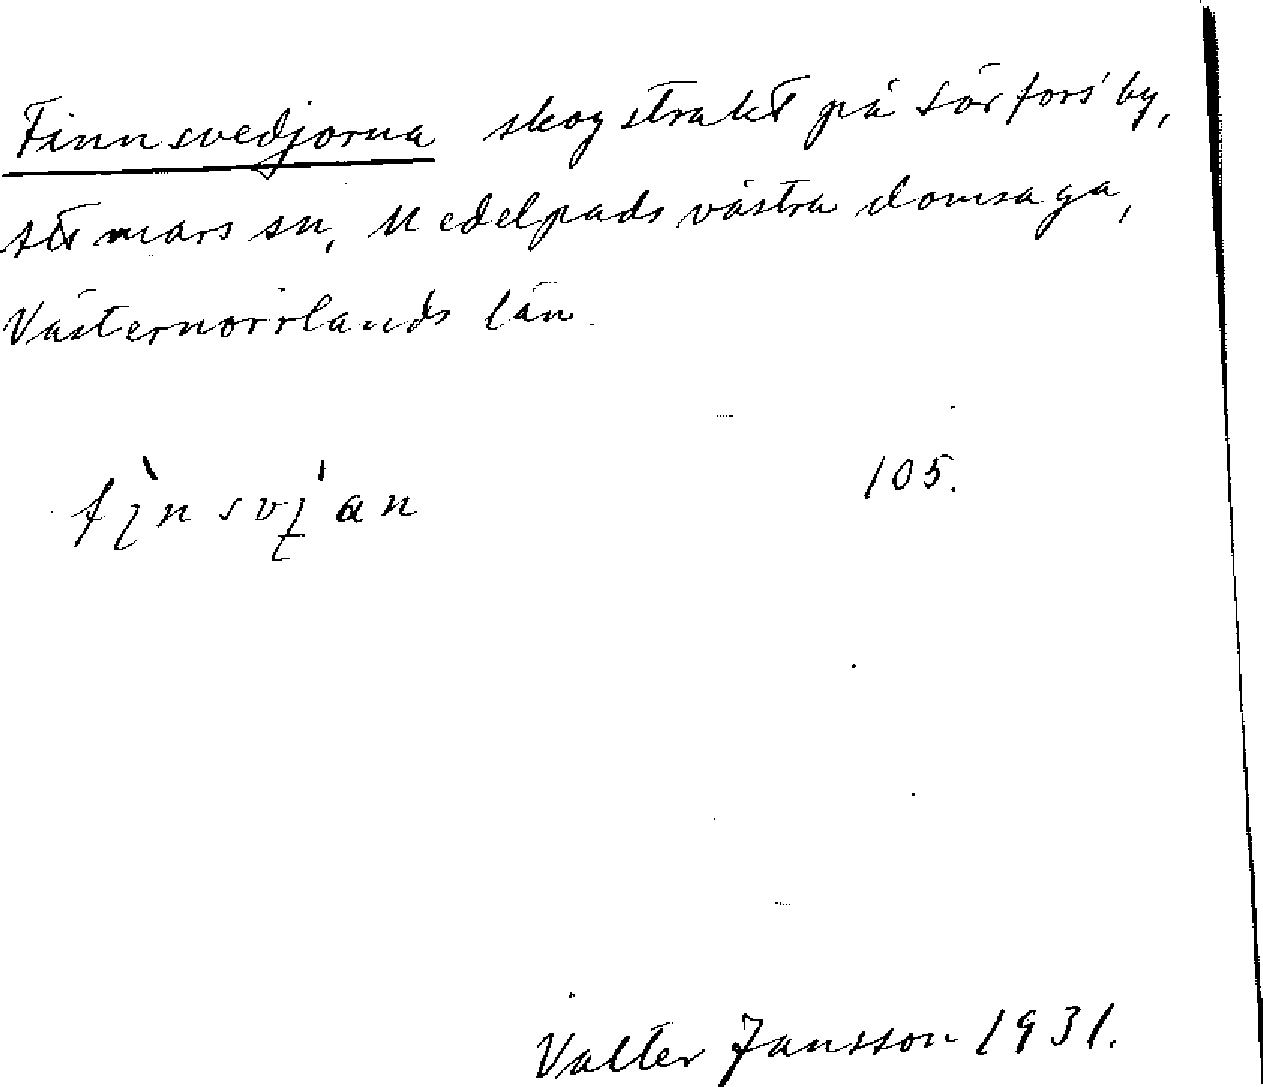 Finnsvedjorna skogstrakt på Sörfors by,
Attmars sn, Medelpads västra domsaga,
Västernorrlands län.
105.
Valter Jansson 1931.